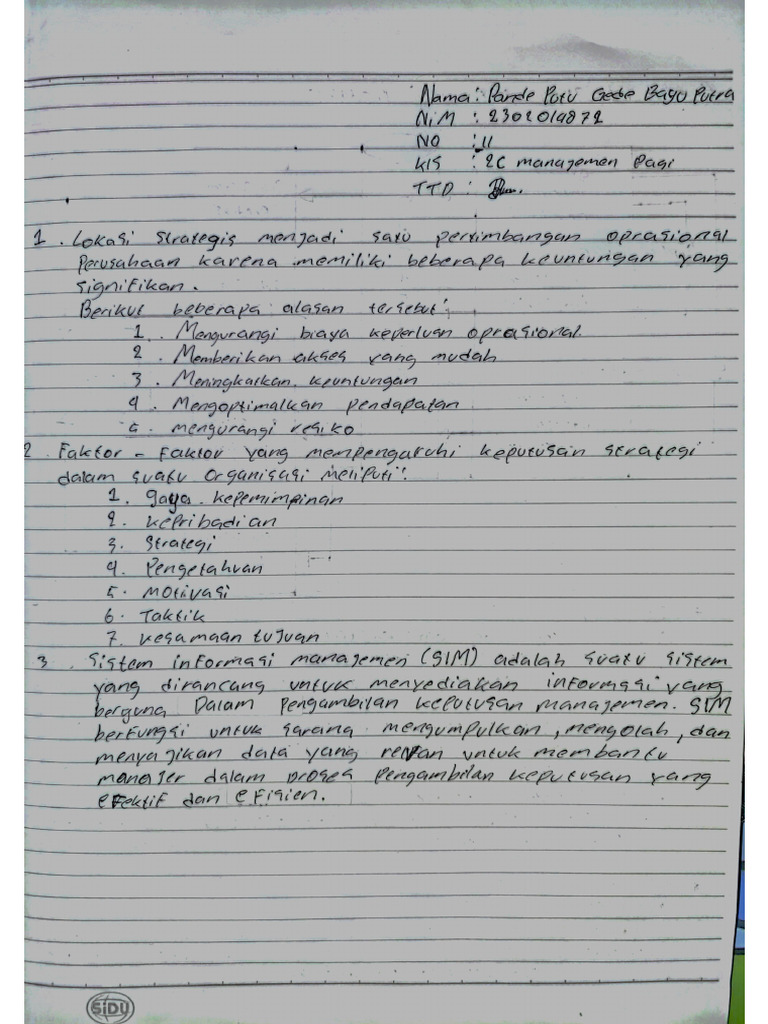 Nama : Pande Putu Gede Bayu Putra
NiM : 2302019872
NO : 11
KlS : 2C manajemen Pagi
TTD :
1. Lokasi strategis menjadi satu pertimbangan oprasional
Perusahaan karena memiliki beberapa keuntungan yang
signifikan.
Berikut beberapa alasan tersebut :
1. Mengurangi biaya keperluan oprasional.
2. Memberikan akses yang mudah
3. Meningkatkan keuntungan
4. Mengoptimalkan pendapatan
5. mengurangi resiko
2. Faktor - Faktor yang mempengaruhi keputusan strategi
dalam suatu organisasi meliputi :
1. gaya kepemimpinan
2. kepribadian
3. Strategi
4. Pengetahuan
5. Motivasi
6. Taktik
7. kesamaan tujuan
3. Sistem informasi manajemen (SIM) adalah suatu sistem
yang dirancang untuk menyediakan informasi yang
berguna Dalam pengambilan keputusan manajemen. SIM
berfungsi untuk sarana mengumpulkan, mengolah, dan
menyajikan data yang untuk membantu
manajer dalam proses pengambilan keputusan yang
efektif dan efisien.
SiDU